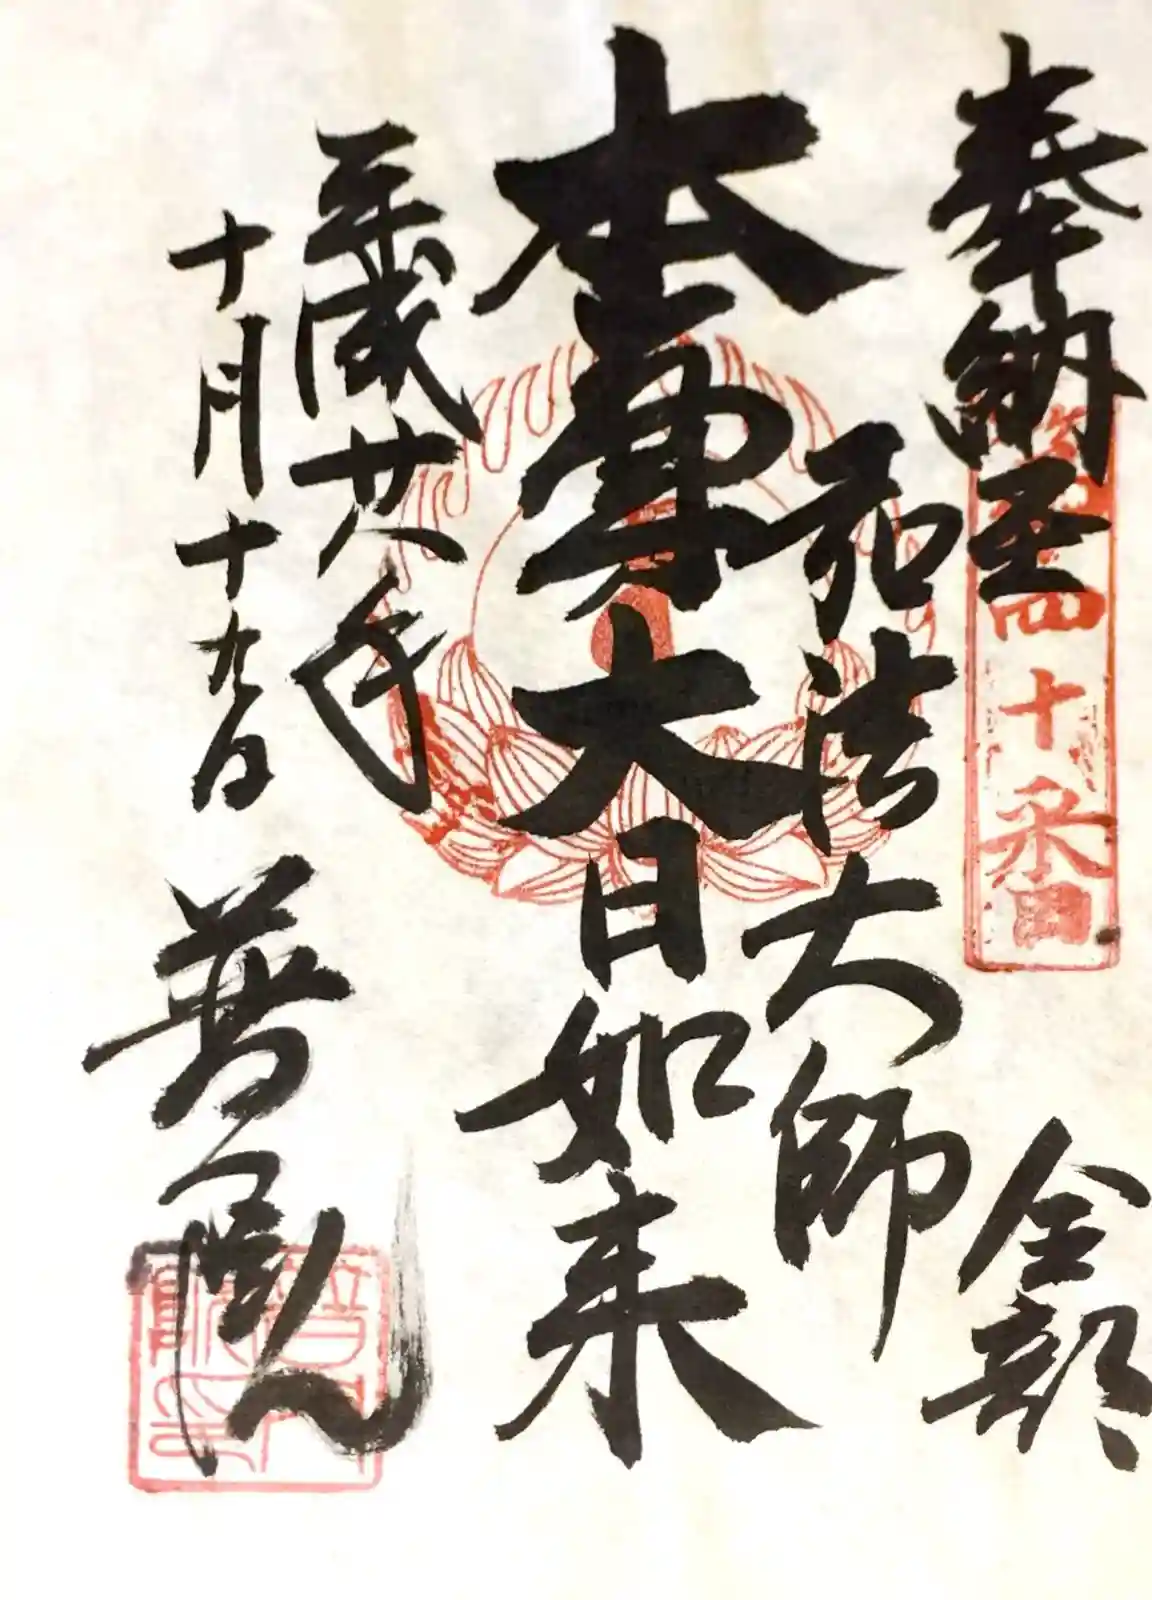 奉納経
金部
弘法大師
本尊大日如来
平成廿八年
十月十九日
普門院
四十番